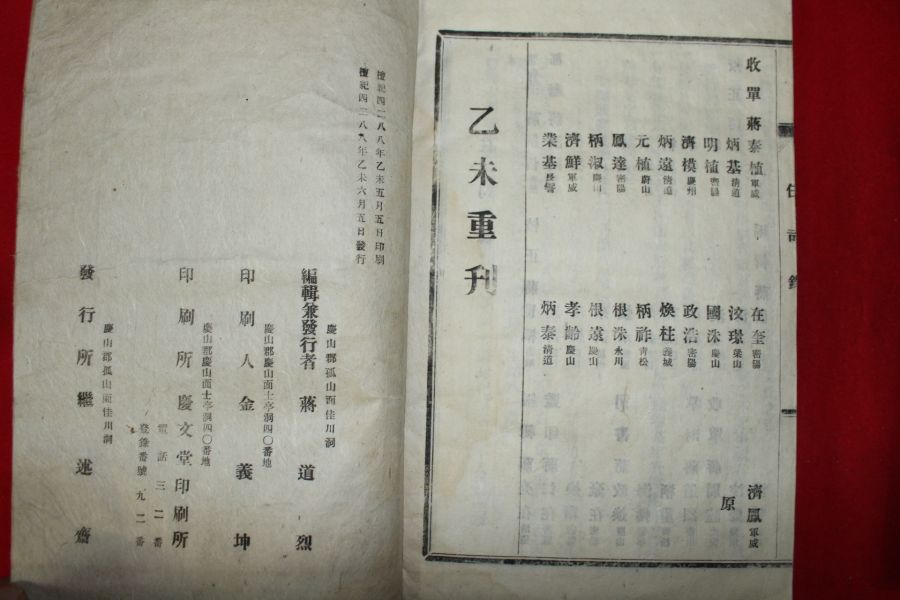 收單 蔣泰植軍威 在奎密陽 濟鳳軍威
炳基淸道 汶璟梁山 原
明植密陽 國洙慶山
濟模慶州 政浩密陽
炳遠淸道 煥柱義城
元植蔚山 柄祚靑松
鳳達密陽 根洙永川
柄淑慶山 根遠慶山
濟鮮軍威 孝齡慶山
業基長鬐 炳泰淸道
乙未重刊
檀紀四二八八年乙未五月五日印刷
檀紀四二八八年乙未六月五日發行
慶山郡孤山面佳川洞
編輯兼發行者 蔣道烈
慶山郡慶山面士亭洞四〇番地
印刷人 金義坤
慶山郡慶山面士亭洞四〇番地
印刷所 慶文堂印刷所
電話三二番
登錄番號九二番
慶山郡孤山面佳川洞
發行所 繼述齋